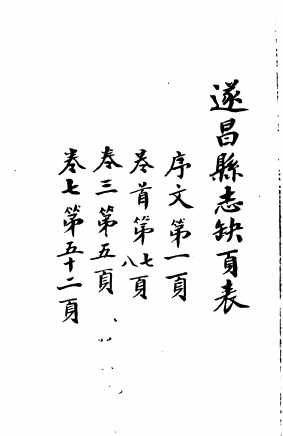 遂昌縣志缺頁表
序文第一頁
卷首第七八頁
卷三第五頁
卷七第五十二頁